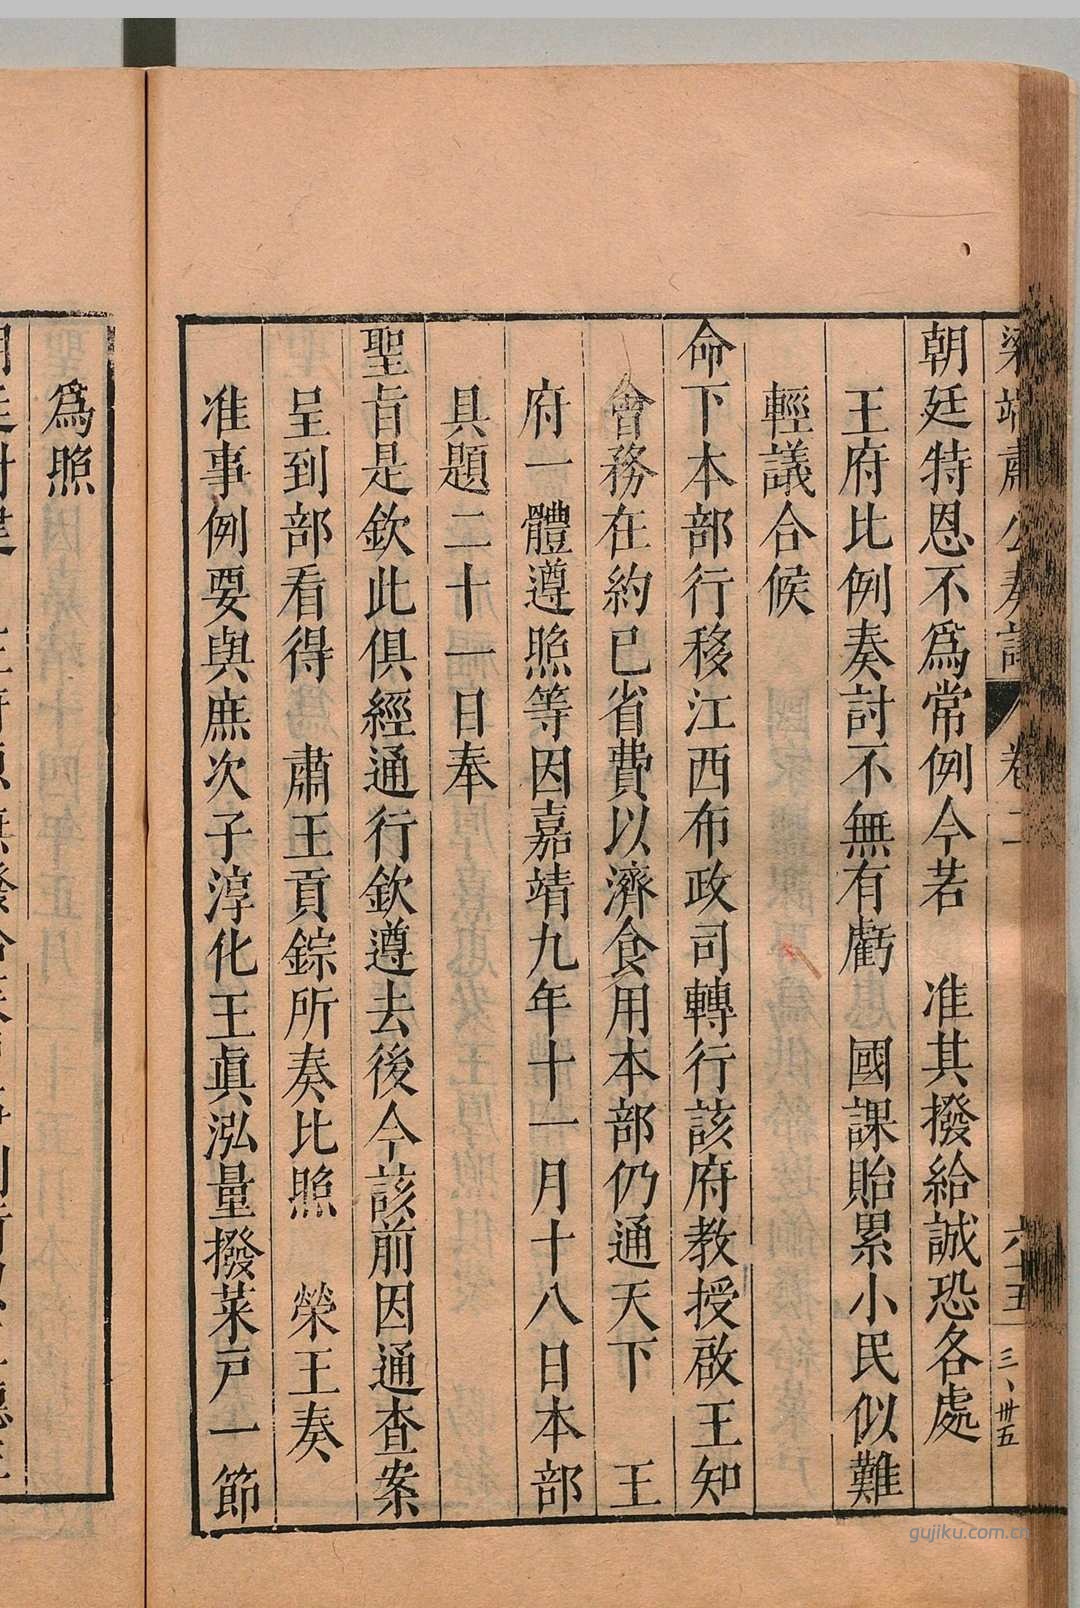 梁端肅公奏議 卷二 六十五
三、卅五
朝廷特恩不爲常例今若 准其撥給誠恐各處
王府比例奏討不無有虧 國課貽累小民似難
輕議合候
命下本部行移江西布政司轉行該府教授啟王知
會務在約已省費以濟食用本部仍通天下 王
府一體遵照等因嘉靖九年十一月十八日本部
具題二十一日奉
聖旨是欽此俱經通行欽遵去後今該前因通查案
呈到部看得 肅王貢錝所奏比照 榮王奏
准事例要與庶次子淳化王眞泓量撥菜戶一節
爲照
gujiku.com.cn